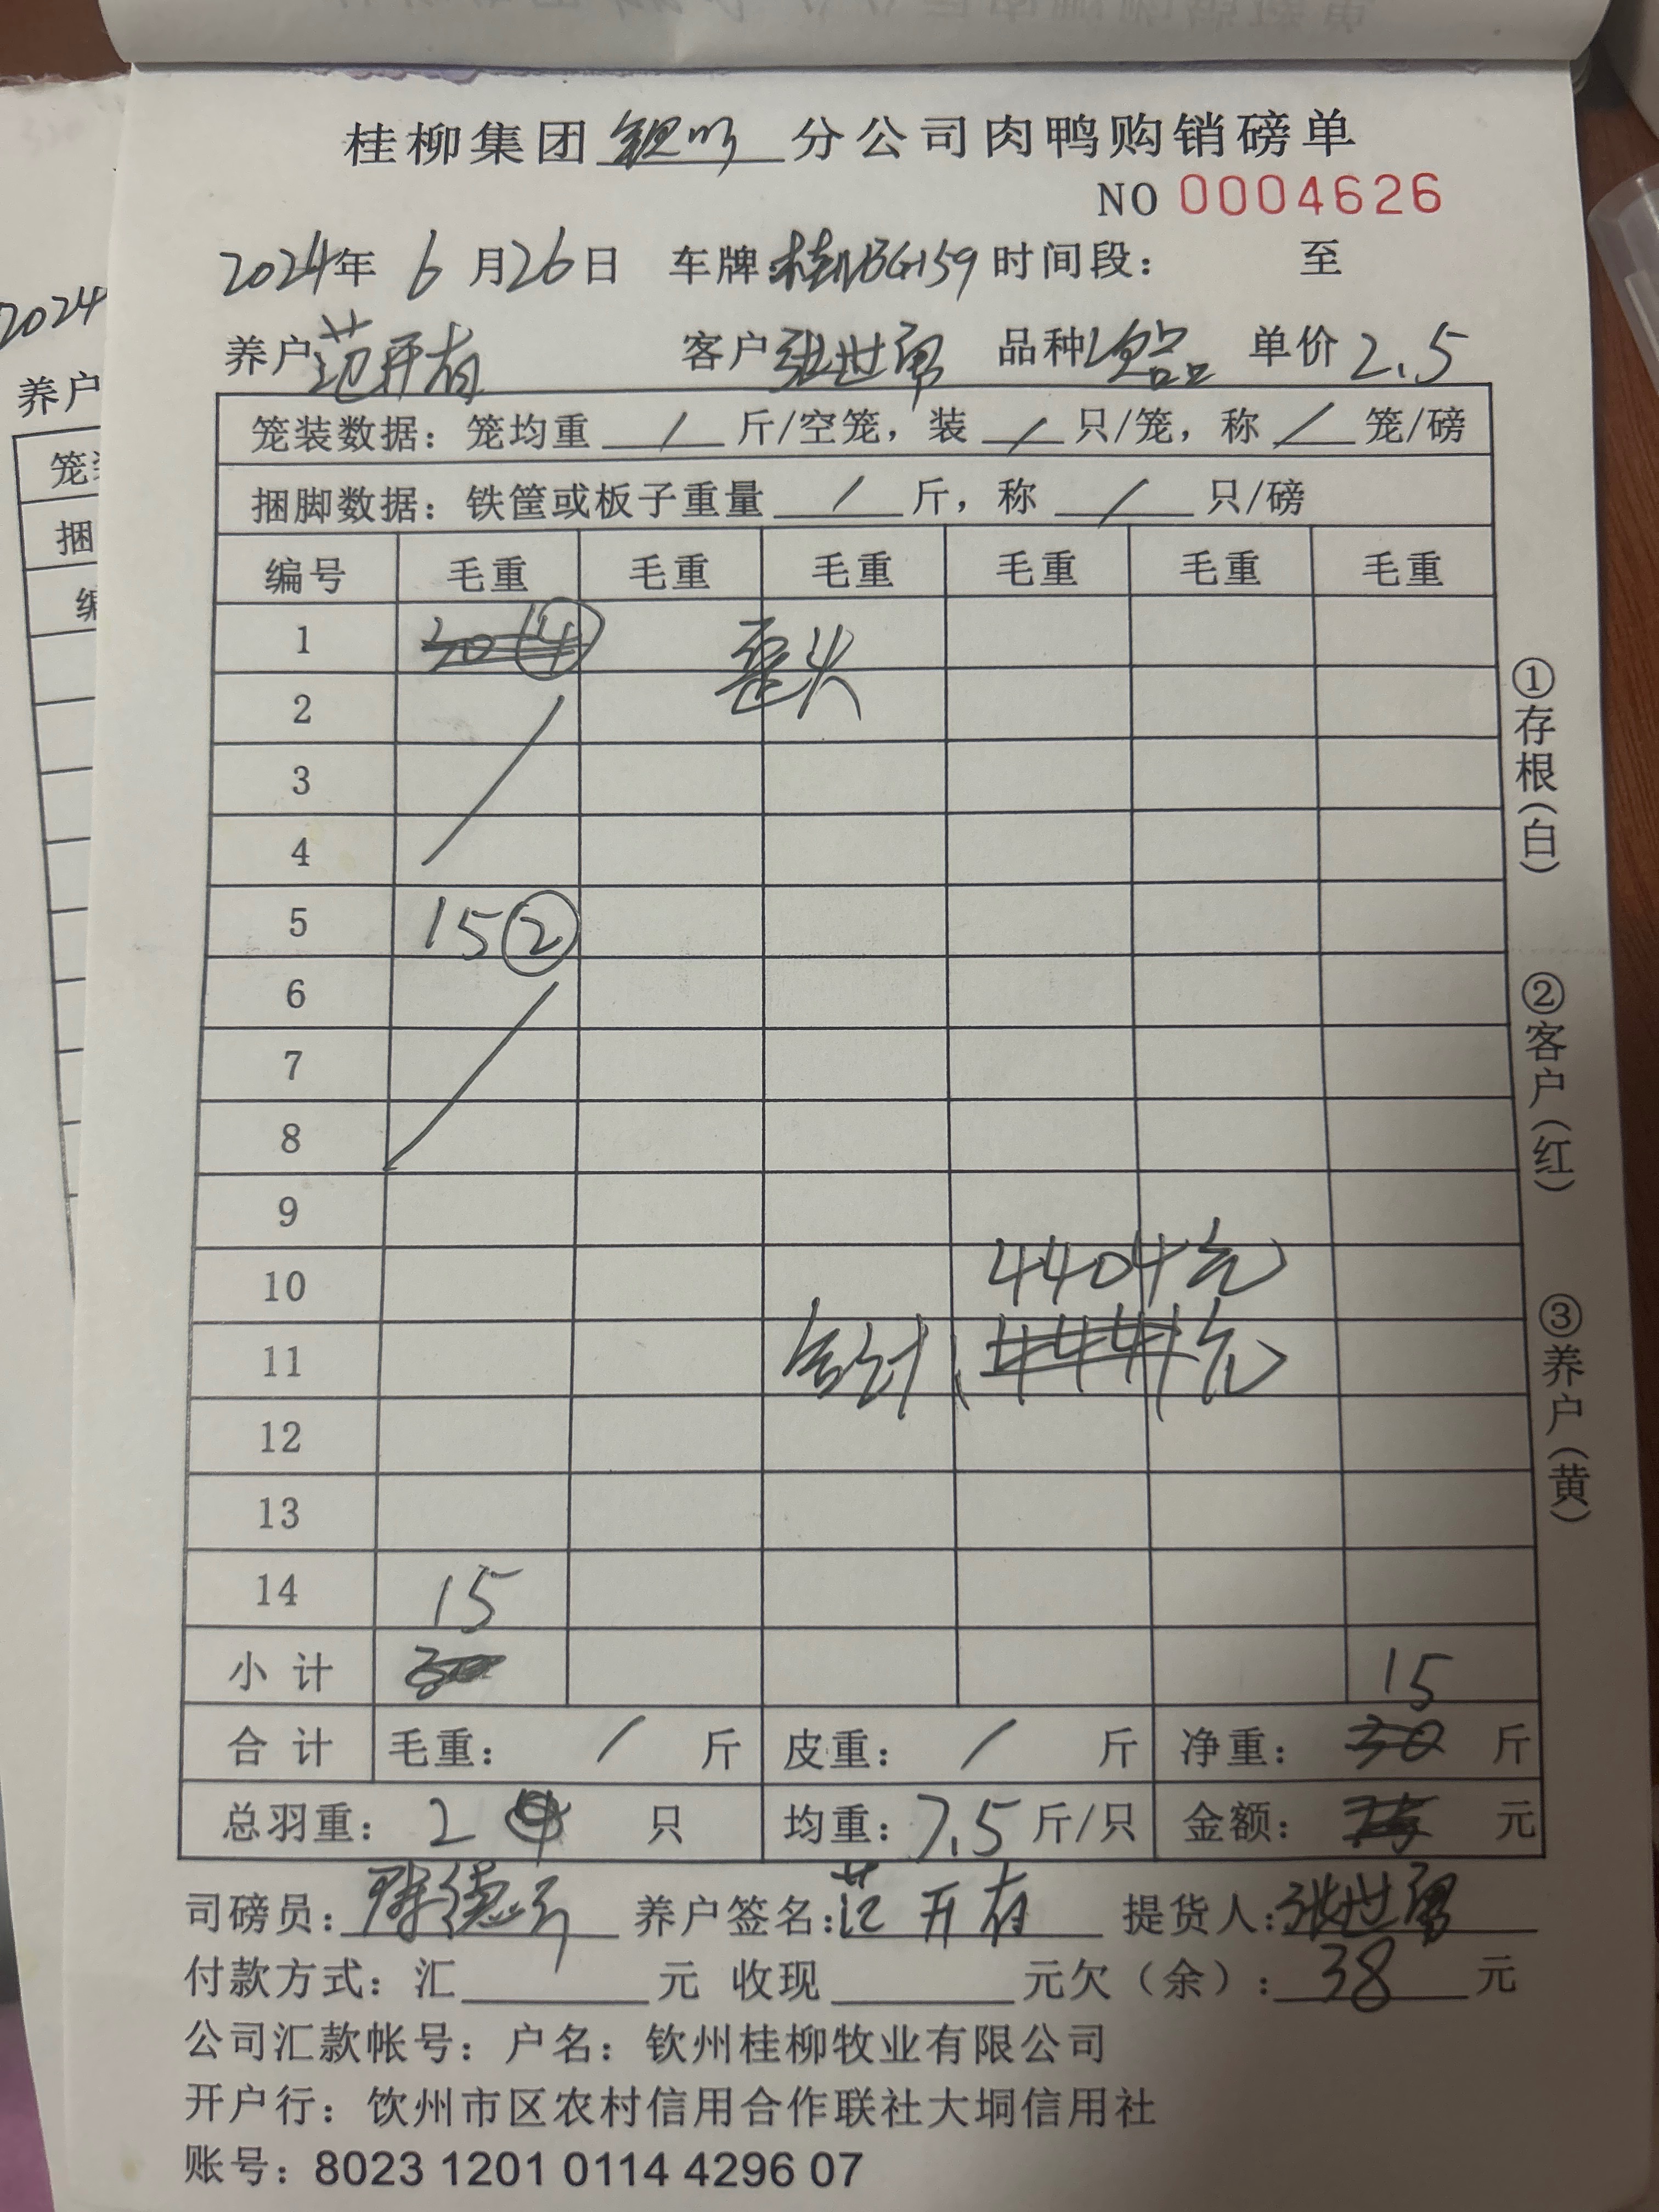 桂柳集团 分公司肉鸭购销磅单
NO 0004626
2024年 6月26日 车牌:桂NBG159 时间段： 至
养户 范开有 客户 张世勇 品种 单价 2.5
笼装数据：笼均重 / 斤/空笼，装 / 只/笼，称 / 笼/磅
捆脚数据：铁筐或板子重量 / 斤，称 / 只/磅
编号 毛重 毛重 毛重 毛重 毛重 毛重
1 30 ④ 歪头
2
3
4
5 15 ②
6
7
8
9
10 4404元
11 合计、4441元
12
13
14 15
小计 30 15
合计 毛重： / 斤 皮重： / 斤 净重： 30 斤
总羽重： 2 只 均重：7.5 斤/只 金额： 75 元
司磅员： 养户签名：范开有 提货人：张世勇
付款方式：汇 元 收现 元欠（余）：38 元
公司汇款帐号：户名：钦州桂柳牧业有限公司
开户行：饮州市区农村信用合作联社大垌信用社
账号：8023 1201 0114 4296 07
①存根（白）
②客户（红）
③养户（黄）
2024
养户